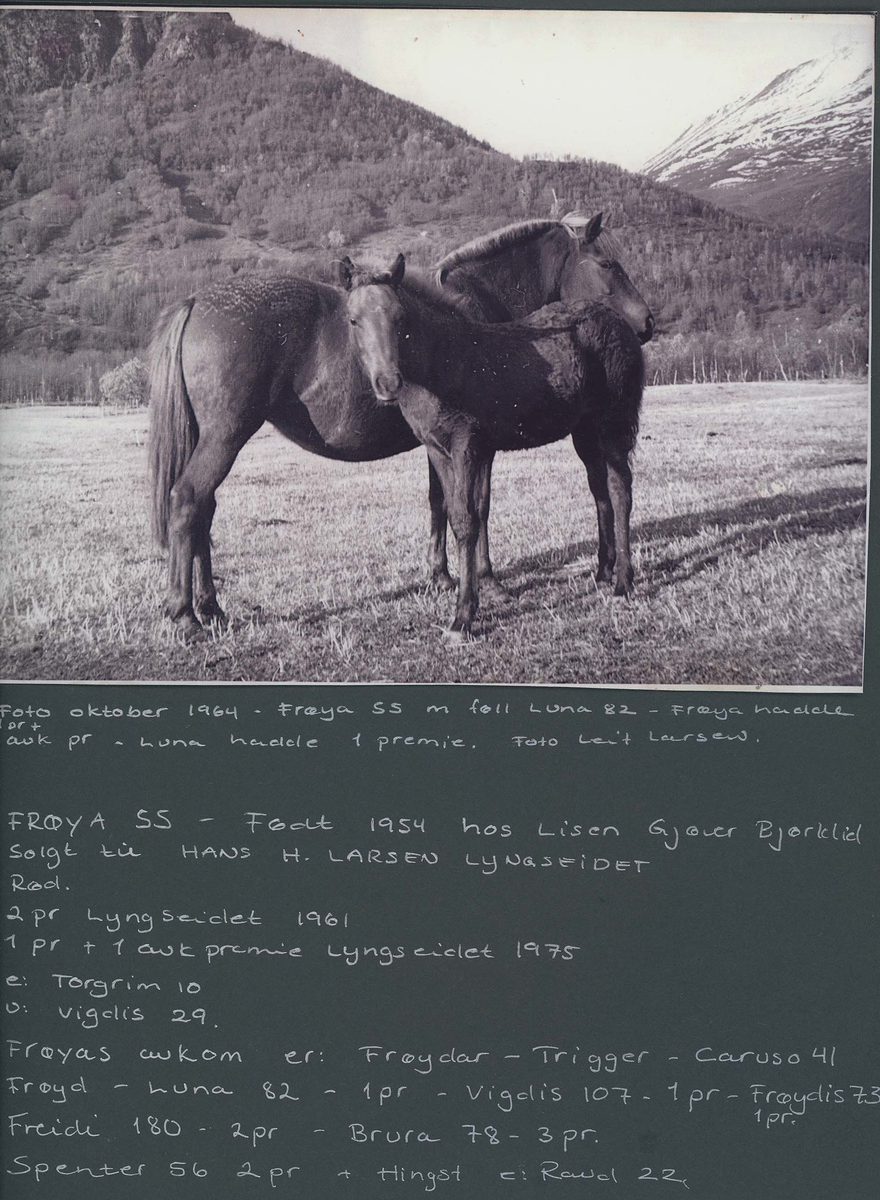 Foto oktober 1964 - Frøya 55 m føll Luna 82 - Frøya hadde
1 pr +
avk pr - Luna hadde 1 premie. Foto Leif Larsen.
FRØYA 55 - Født 1954 hos Lisen Gjøver Bjørklid
Solgt til HANS H. LARSEN LYNGSEIDET
Rød.
2 pr Lyngseidet 1961
1 pr + 1 avk premie Lyngseidet 1975
e: Torgrim 10
u: Vigdis 29.
Frøyas avkom er: Frøydar - Trigger - Caruso 41
Frøyd - Luna 82 - 1pr - Vigdis 107 - 1 pr - Frøydis 73
1pr.
Freidi 180 - 2pr - Brura 78 - 3 pr.
Spenter 56 2 pr + Hingst e: Raud 22